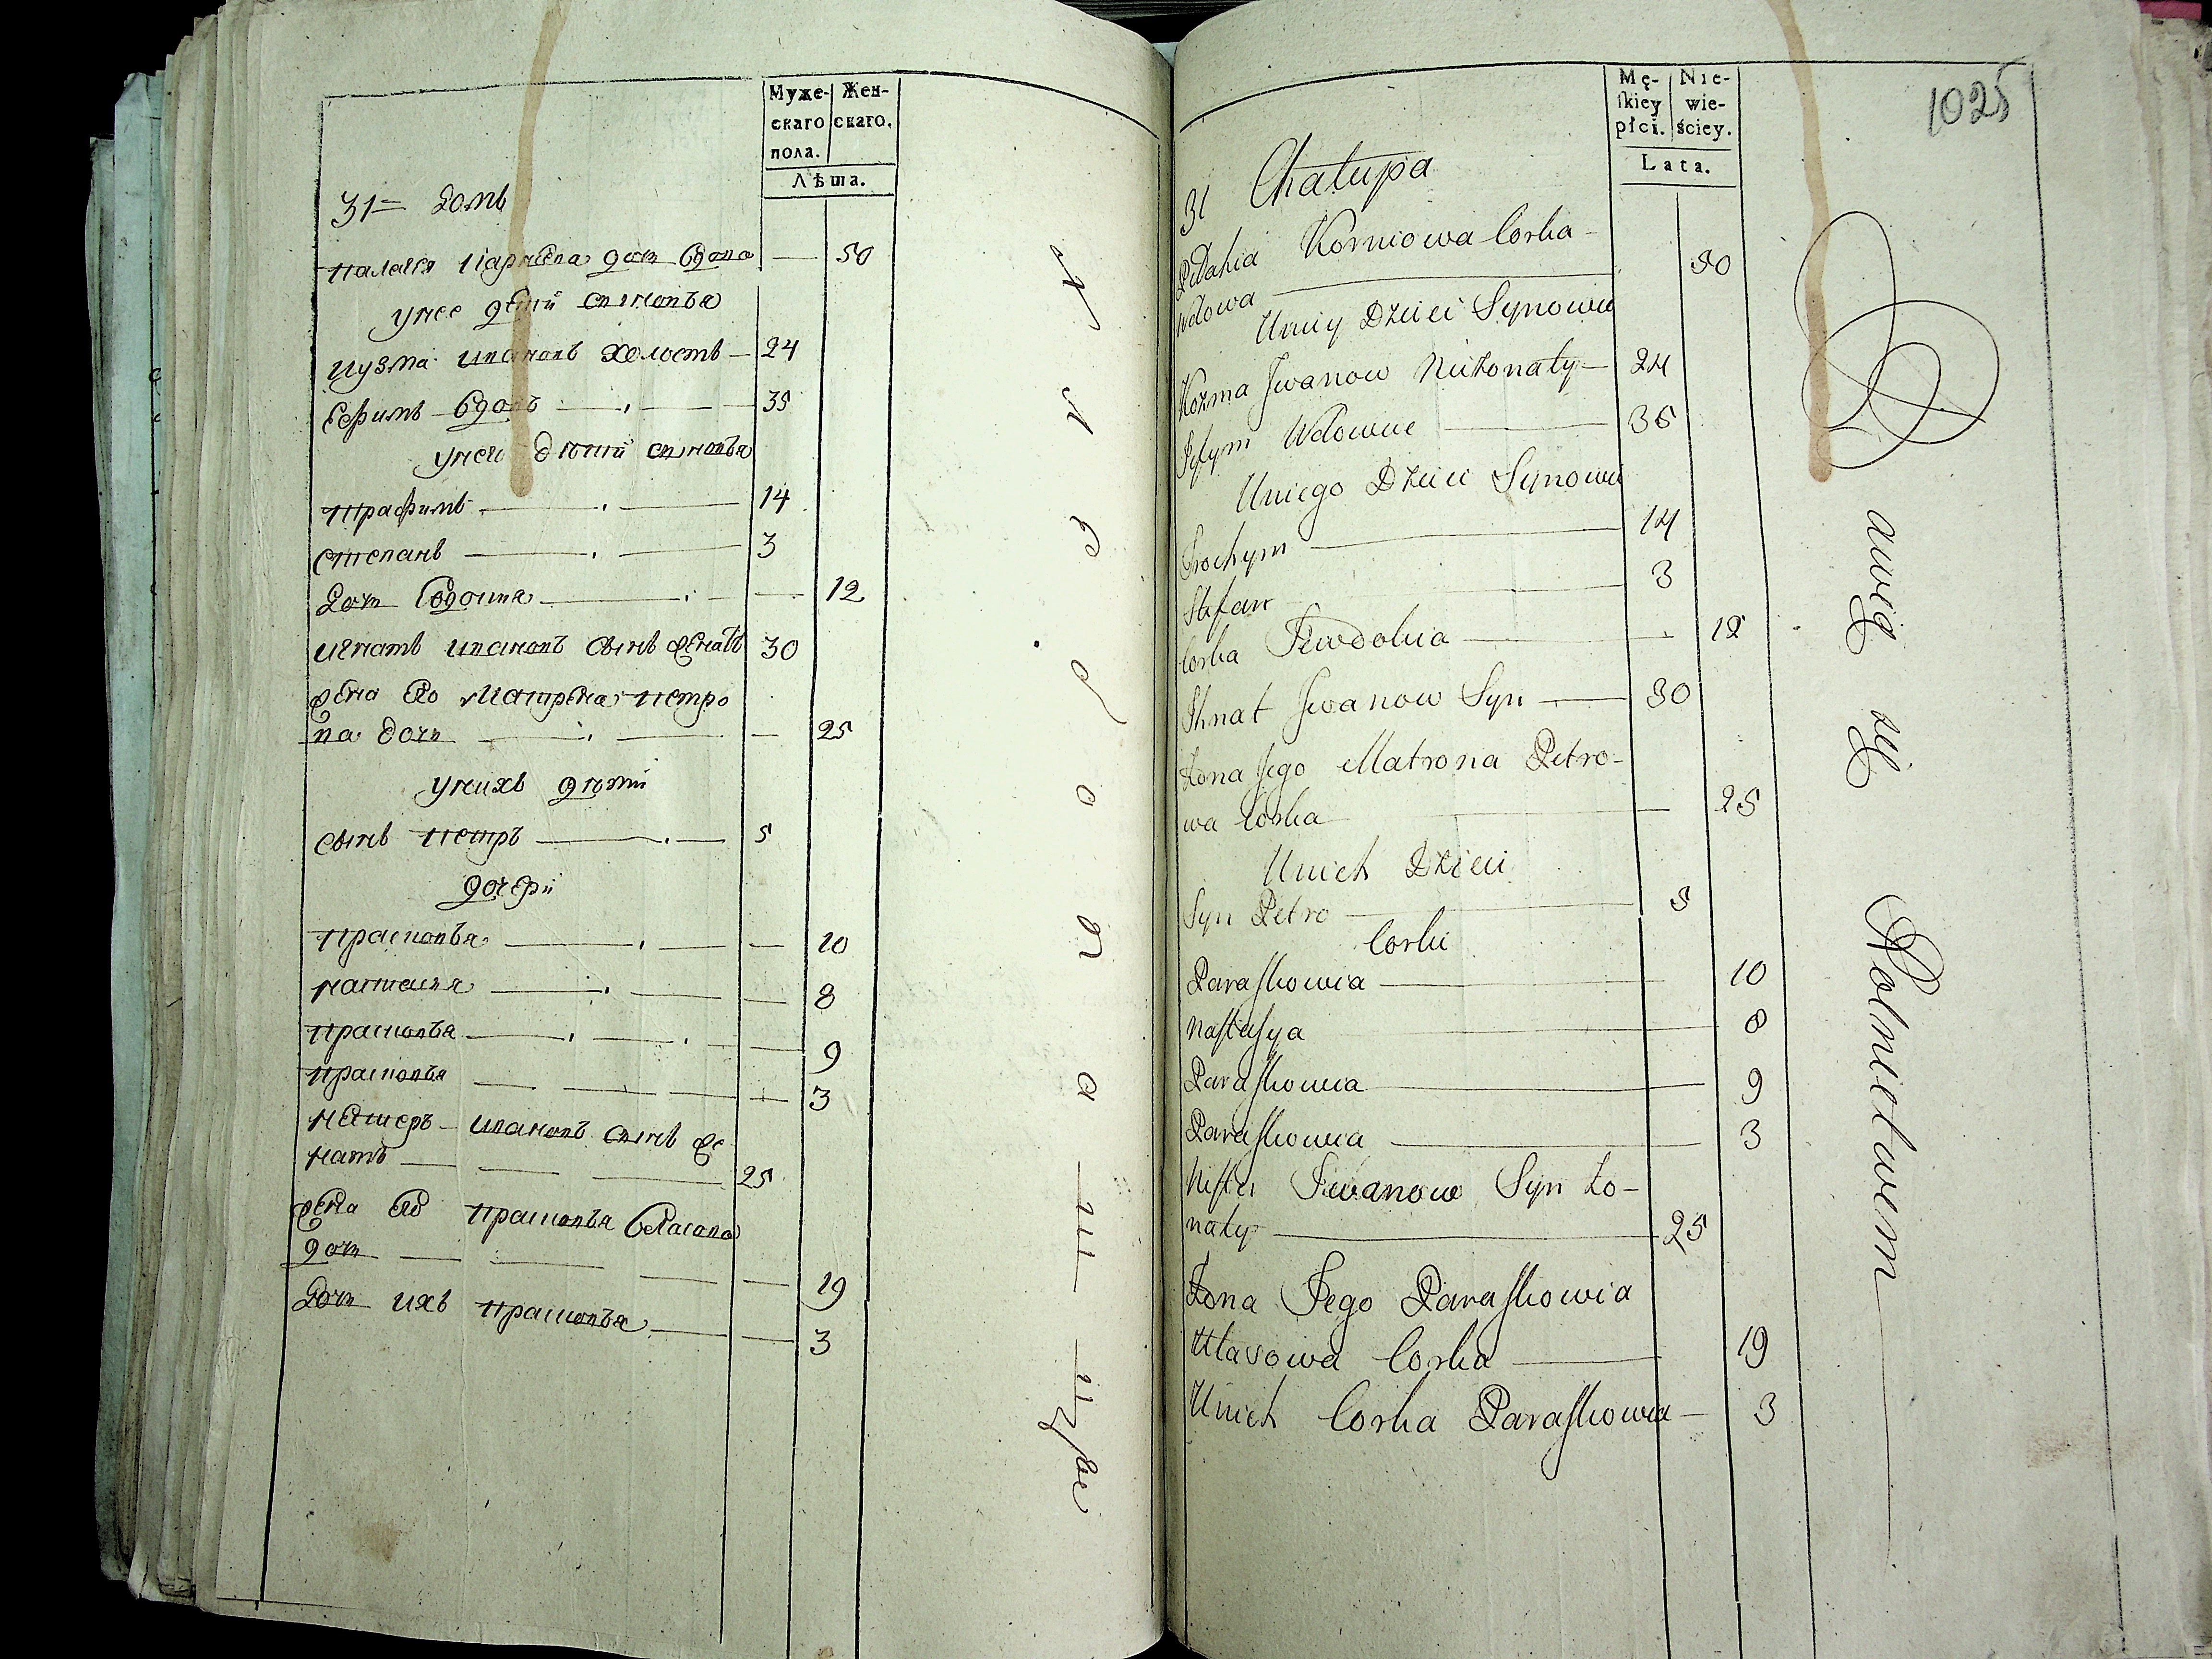 Муже-
скаго
пола.
Жен-
скаго.
Лѣта.
31 = Домъ
Палагея дочь вдова — 50
у нее дети сыновья
Кузма Ивановъ холостъ — 24
Ефимъ вдовъ — 35
у него дѣти сыновья
Трафимъ — 14
Степанъ — 3
Дочь — 12
Игнатъ Ивановъ сынъ женатъ 30
жена его Матрена Петро
ва дочь — 25
у нихъ дѣти
сынъ Петръ — 5
дочери
Прасковья — 10
Настасья — 8
Прасковья — 9
Прасковья — 3
Нестеръ Ивановъ сынъ же
натъ — 25
жена его Прасковья Власова
дочь — 19
Дочь ихъ Прасковья — 3
1025
Mę-
skiey
płci.
Nie-
wie-
ściey.
Lata.
31 Chałupa
Korniowa Corka -
wdowa — 50
Uniey Dzieci Synowie
Kozma Jwanow Nieżonaty — 24
Jefym Wdowiec — 35
Uniego Dzieci Synowie
Trochym — 14
Stefan — 3
Corka Fewdokia — 12
Jhnat Jwanow Syn — 30
Żona Jego Matrona Petro-
wa Corka — 25
Unich Dzieci
Syn Petro — 5
Corki
Paraskowia — 10
Nastasya — 8
Paraskowia — 9
Paraskowia — 3
Nister Iwanow Syn Żo-
naty — 25
Żona Jego Paraskowia
Ułasowa Corka — 19
Unich Corka Paraskowia — 3